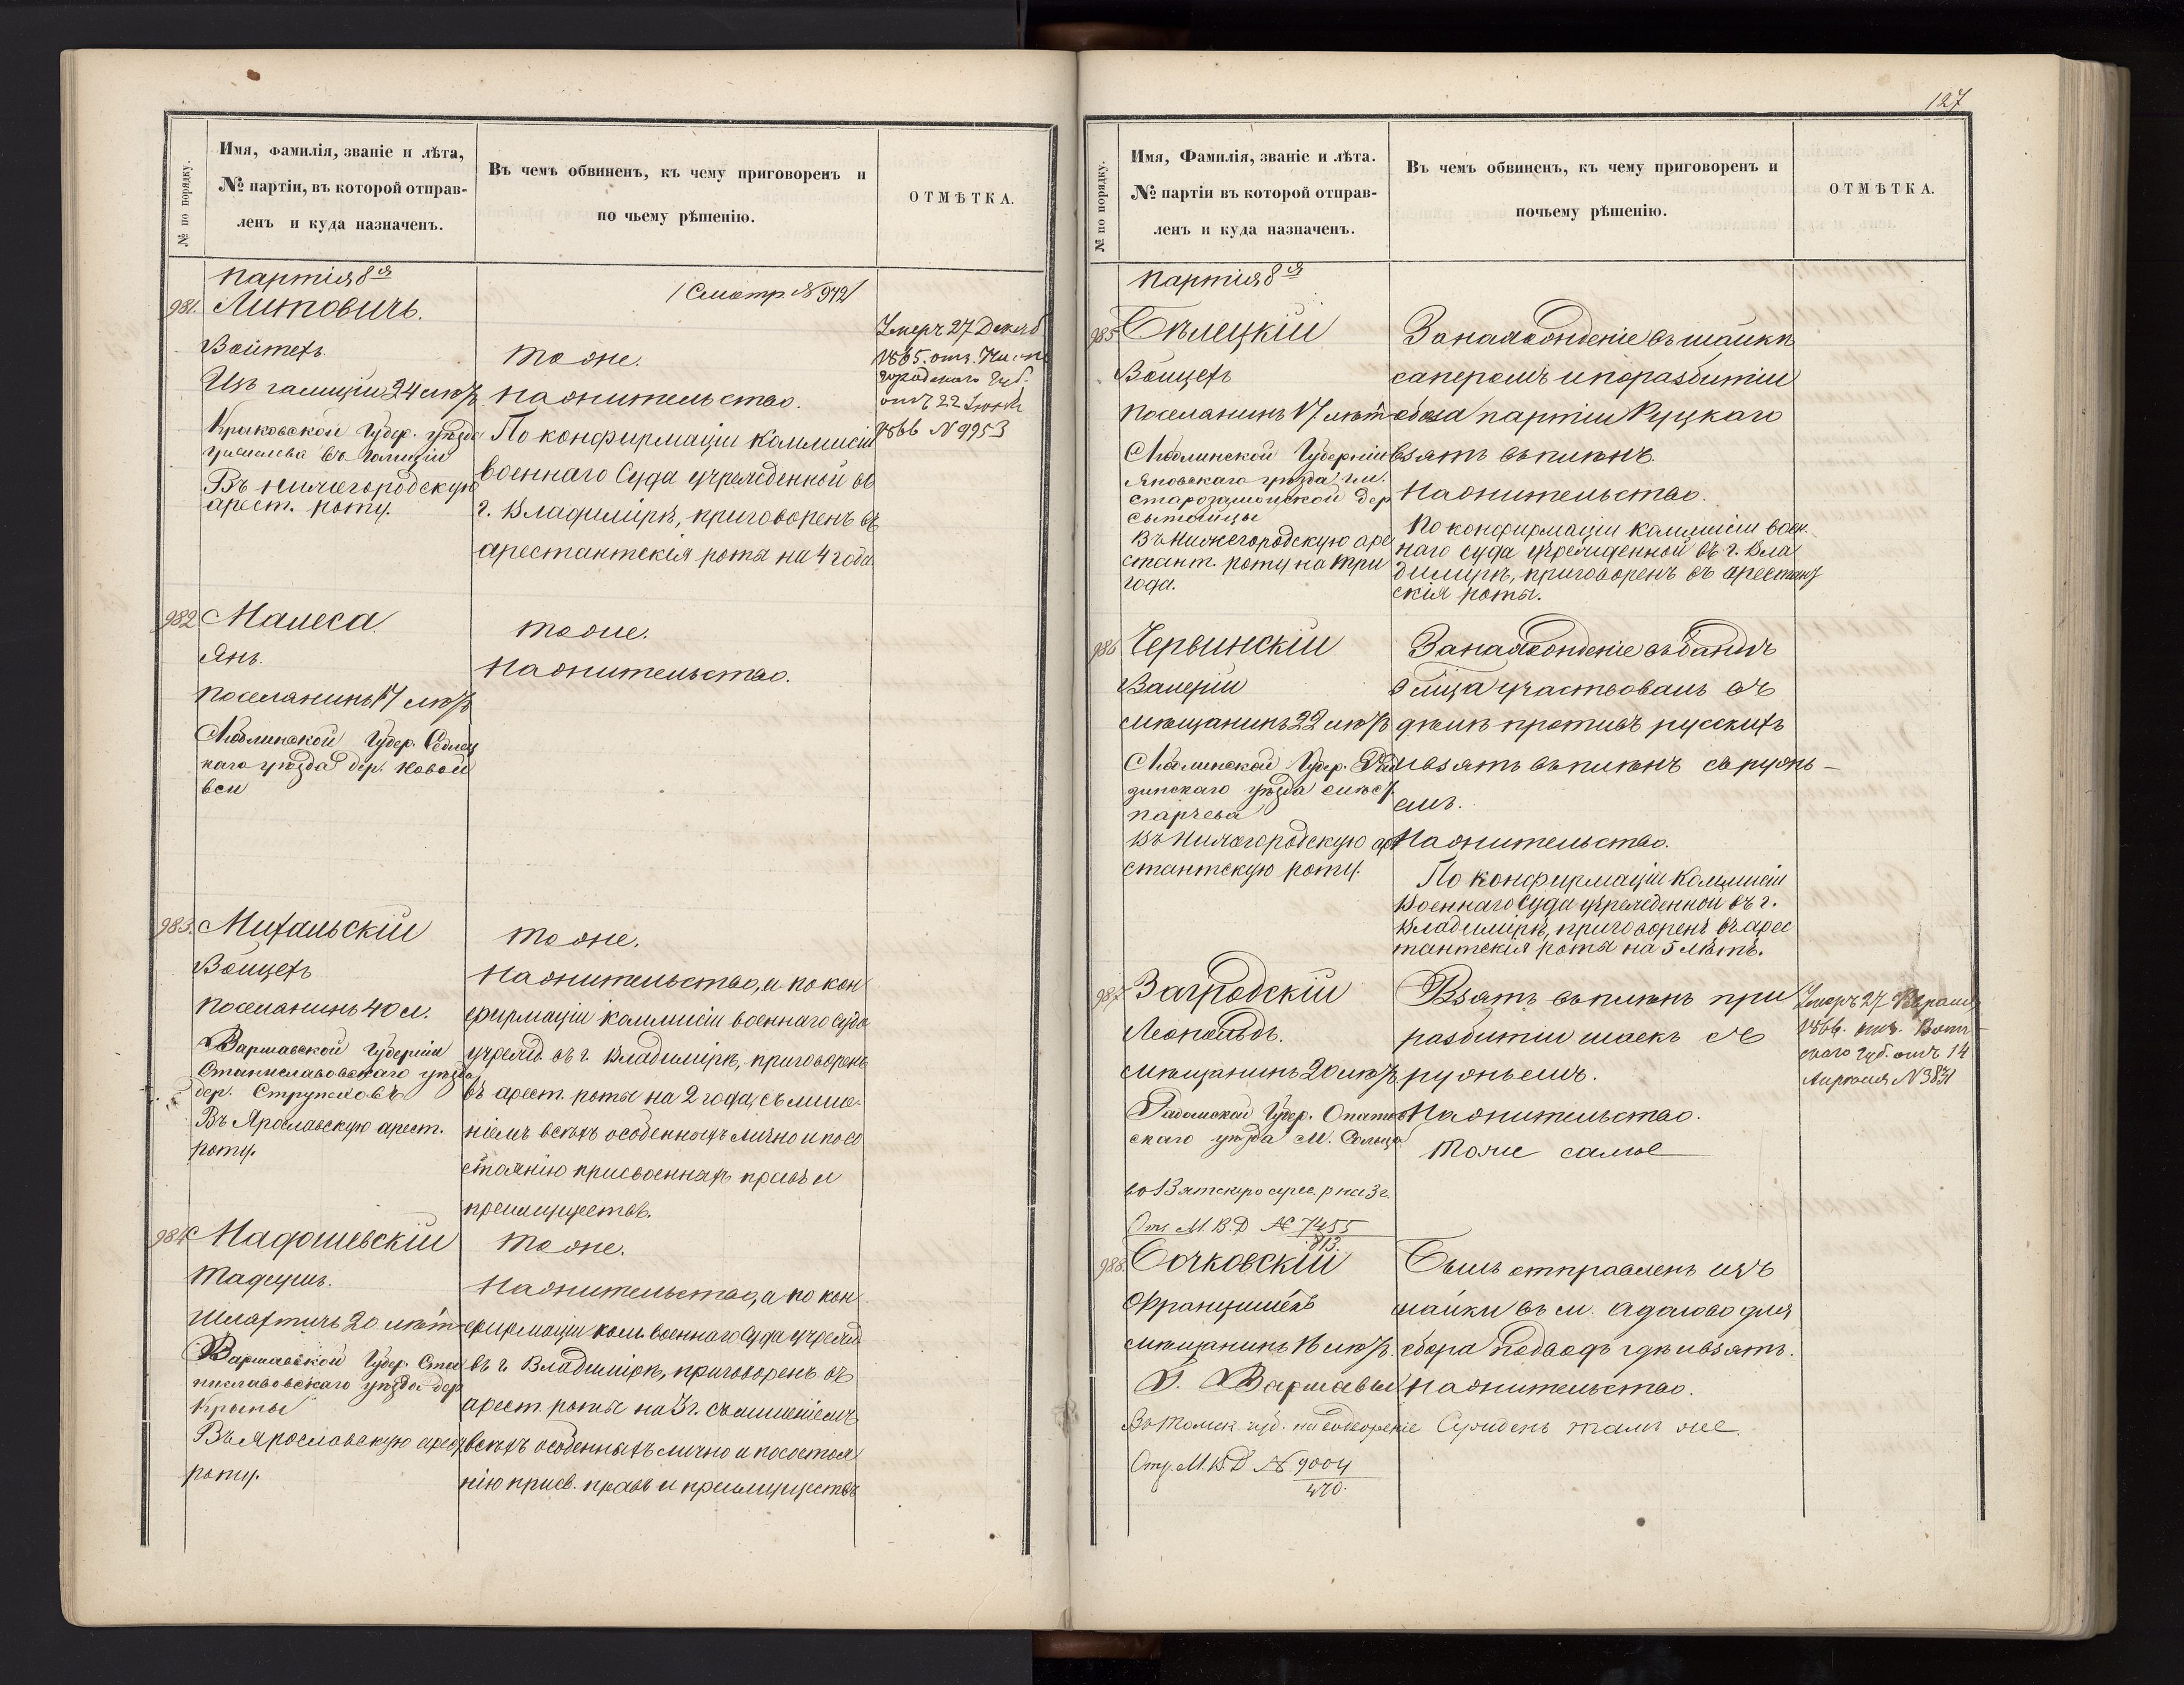 № по порядку.
Имя, Фамилія, званіе и лѣта,
№ партіи, въ которой отправ-
ленъ и куда назначенъ.
Въ чемъ обвиненъ, къ чему приговоренъ и
по чьему рѣшенію.
ОТМѢТКА.
Партія 8я
981. Литовичъ.
Войтехъ.
Изъ Галиціи 24 лѣтъ
Краковской Губер. уѣзда
въ Галиціи
Въ Нижегородскую
арест. роту.
/Смотр. № 942/
тоже.
На жительство.
По конфирмаціи Коммисіи
военнаго Суда учрежденной въ
г. Владимірѣ, приговоренъ въ
арестантскія роты на 4 года.
Умеръ 27 Декаб
1865. отз. Ниже
городскаго Губ.
отъ 22
1866 № 9953
982 Малеса.
Янъ.
Поселанинъ 17 лѣтъ
Люблинской Губер. Седлец
каго уѣзда дер. Новой
вси
тоже.
На жительство.
983. Михальскій
Войцехъ
Поселанинъ 40 л.
Варшавской Губерніи
Станиславовскаго уѣзда
дер.
Въ Ярославскую арест.
роту.
тоже.
На жительство, и по кон
фирмаціи коммисіи военнаго Суда
учрежд. въ г. Владимірѣ, приговоренъ
въ арест. роты на 2 года, съ лише-
ніемъ всѣхъ особенныхъ лично и по со
стоянію присвоенныхъ правъ и
преимуществъ.
984. Надошевскій
Тадеушъ.
Шляхтичъ 20 лѣтъ
Варшавской Губер. Ста
ниславовскаго уѣзда дер
Крыпы
Въ Ярославскую арест
роту.
тоже.
На жительство, а по кон
фирмаціи ком. военнаго Суда учрежд
въ г. Владимірѣ, приговоренъ въ
арест. роты на 3 г. съ лишеніемъ
всѣхъ особенныхъ лично и по состоя
нію присв. правъ и преимуществъ
127
№ по порядку.
Имя, Фамилія, званіе и лѣта.
№ партіи въ которой отправ-
ленъ и куда назначенъ.
Въ чемъ обвиненъ, къ чему приговоренъ и
почьему рѣшенію.
ОТМѢТКА.
Партія 8я
985. Бѣлецкій
Войцехъ
Поселанинъ 17 лѣтъ
Люблинской Губерніи
Яновскаго уѣзда гм.
старозамойской дер
В Нижегородскую аре
стант. роту на три
года.
За нахожденіе въ шайкѣ
саперомъ и по разбитіи
обоза партіи Руцкаго
взятъ въ плѣнъ.
На жительство.
По конфирмаціи Коммисіи воен
наго суда учрежденной въ г. Вла
димирѣ, приговоренъ въ арестант
скія роты.
986 Червинскій
Валерій
мѣщанинъ 22 лѣтъ
Люблинской Губер. Рад
зинскаго уѣзда мѣст.
Парчева
Въ Нижегородскую аре
стантскую роту.
За нахожденіе въ бандѣ
участвовалъ въ
дѣлѣ противъ русскихъ
и взятъ въ плѣнъ съ ружь-
емъ.
На жительство.
По конфирмаціи Коммисіи
Военнаго Суда учрежденной въ г.
Владимірѣ, приговоренъ въ арес
тантскія роты на 5 лѣтъ.
987. Загродскій
Леопольдъ.
Мѣщанинъ 20 лѣтъ
Радомской Губер. Опатов
скаго уѣзда М.
Въ Вятскую арес. р на 3 г.
Отз М.В.Д № 7455
813.
Взятъ въ плѣнъ при
разбитіи шаекъ съ
ружьемъ.
На жительство.
Тоже самое
Умеръ 27 Феврал
1866. отз. Вятс
скаго Губ. отъ 14
Апрѣля № 3831
988. Бочковскій
Францишекъ
мѣщанинъ 16 лѣтъ.
Г. Варшавы
Въ Томск. губ. на водвореніе
Отз. М.В.Д № 9004
470.
Былъ отправленъ изъ
шайки въ м. Адамово для
сбора подводъ гдѣ и взятъ.
На жительство.
Сужденъ тамъ же.